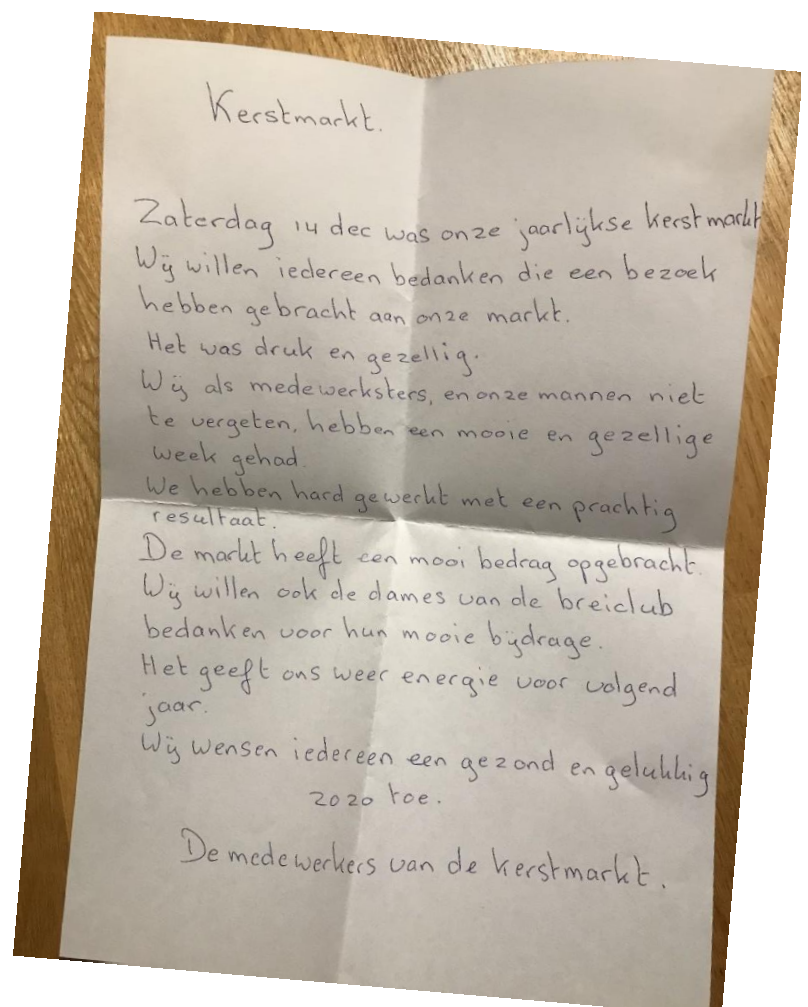 Kerstmarkt.
Zaterdag 14 dec was onze jaarlijkse kerstmarkt
Wij willen iedereen bedanken die een bezoek
hebben gebracht aan onze markt.
Het was druk en gezellig.
Wij als medewerksters, en onze mannen niet
te vergeten, hebben een mooie en gezellige
week gehad.
We hebben hard gewerkt met een prachtig
resultaat.
De markt heeft een mooi bedrag opgebracht.
Wij willen ook de dames van de breiclub
bedanken voor hun mooie bijdrage.
Het geeft ons weer energie voor volgend
jaar.
Wij wensen iedereen een gezond en gelukkig
2020 toe.
De medewerkers van de kerstmarkt.